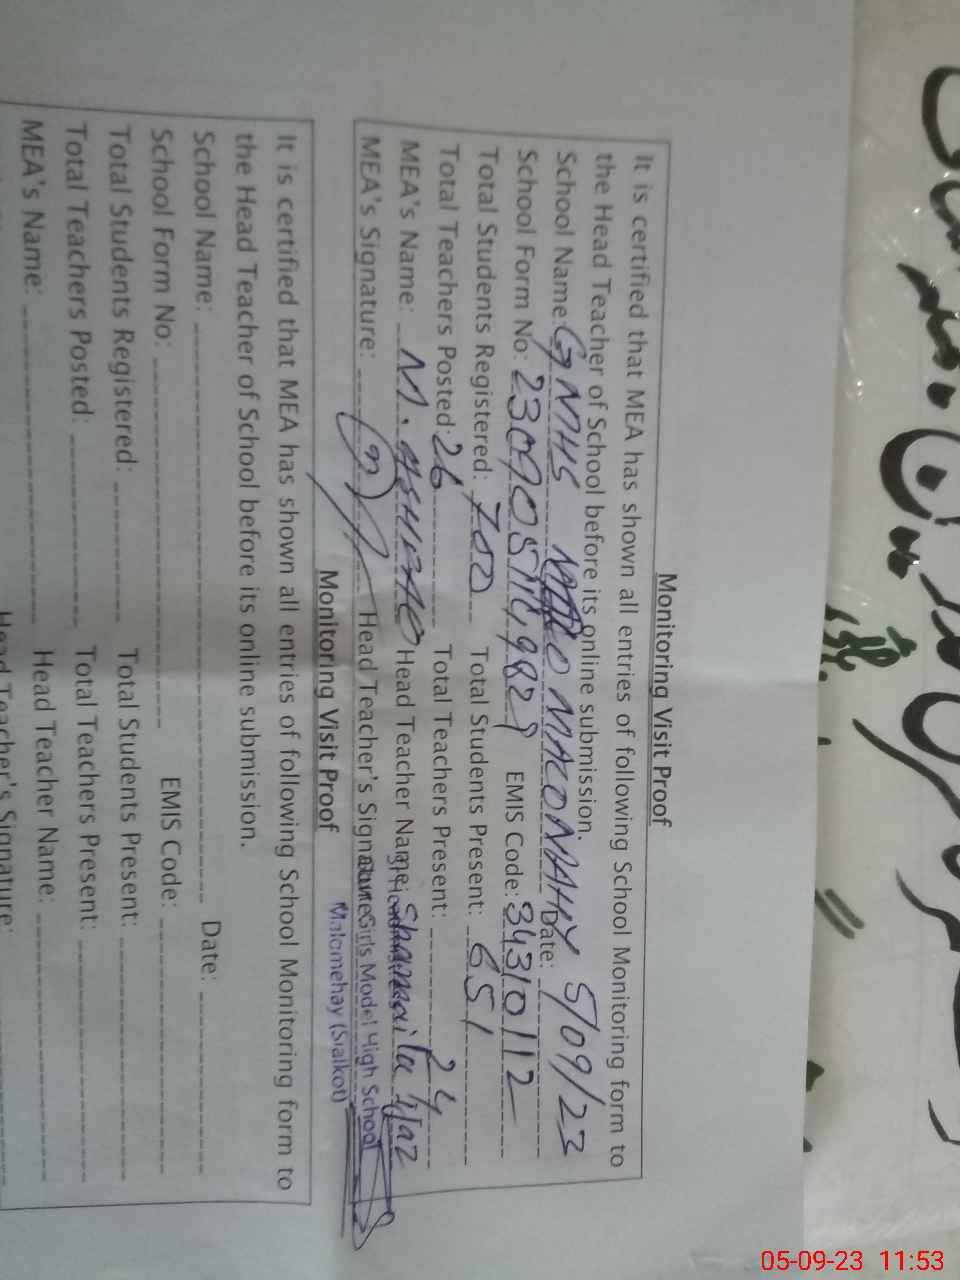 Monitoring Visit Proof
It is certified that MEA has shown all entries of following School Monitoring form to
the Head Teacher of School before its online submission.
School Name: GNHS Date: 5/09/23
School Form No: EMIS Code: 34310112
Total Students Registered: 700 Total Students Present: 651
Total Teachers Posted: 26 Total Teachers Present: 24
MEA's Name: M. Head Teacher Name: Shamaila Ijaz
MEA's Signature: Head Teacher's Signature
Girls Model High School
Malomehay (Sialkot)
Monitoring Visit Proof
It is certified that MEA has shown all entries of following School Monitoring form to
the Head Teacher of School before its online submission.
School Name: Date:
School Form No: EMIS Code:
Total Students Registered: Total Students Present:
Total Teachers Posted: Total Teachers Present:
MEA's Name: Head Teacher Name:
Head Teacher's Signature:
05-09-23 11:53